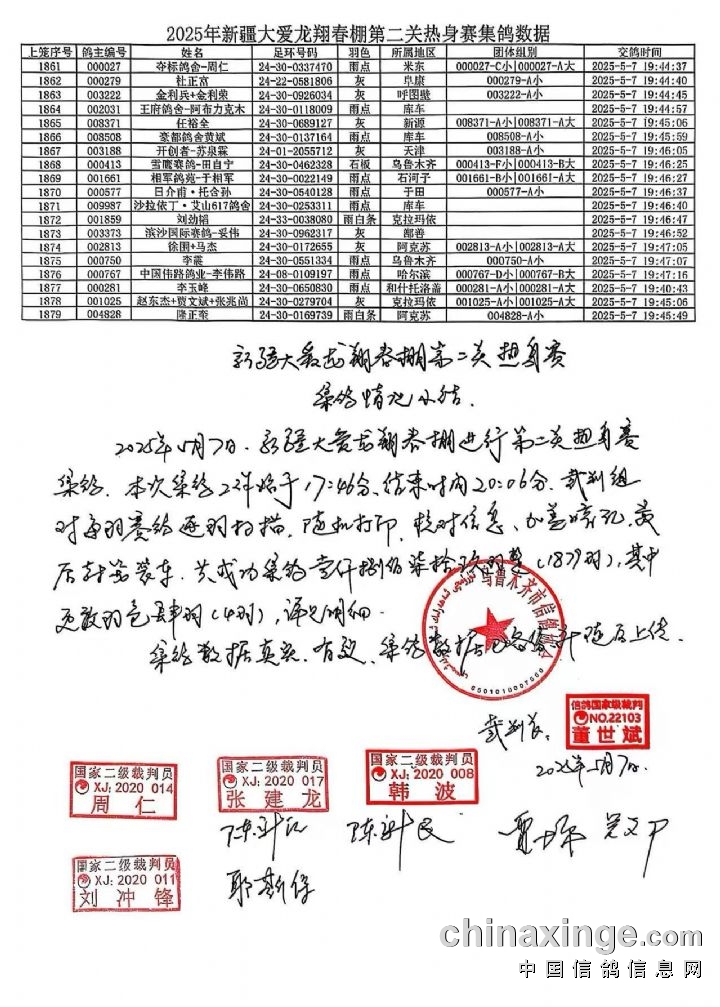 2025年新疆大爱龙翔春棚第二关热身赛集鸽数据
上笼序号 鸽主编号 姓名 足环号码 羽色 所属地区 团体组别 交鸽时间
1861 000027 夺标鸽舍-周仁 24-30-0337470 雨点 米东 000027-C小|000027-A大 2025-5-7 19:44:37
1862 000279 杜正富 24-22-0581806 灰 阜康 000279-A小 2025-5-7 19:44:40
1863 003222 金利兵+金利荣 24-30-0926034 灰 呼图壁 003222-A小 2025-5-7 19:44:45
1864 002031 王府鸽舍-阿布力克木 24-30-0118009 雨点 库车 2025-5-7 19:44:57
1865 008371 任裕全 24-30-0689127 灰 新源 008371-A小|008371-A大 2025-5-7 19:45:06
1866 008508 豪都鸽舍黄斌 24-30-0137164 雨点 库车 008508-A小 2025-5-7 19:45:59
1867 003188 开创者-苏泉霖 24-01-2055712 灰 天津 003188-A小 2025-5-7 19:46:05
1868 000413 雪鹰赛鸽-田自宁 24-30-0462328 石板 乌鲁木齐 000413-F小|000413-B大 2025-5-7 19:46:25
1869 001661 相军鸽苑-于相军 24-30-0022149 雨点 石河子 001661-B小|001661-A大 2025-5-7 19:46:27
1870 000577 日介甫·托合孙 24-30-0540128 雨点 于田 000577-A小 2025-5-7 19:46:37
1871 009987 沙拉依丁·艾山617鸽舍 24-30-0253311 雨点 库车 2025-5-7 19:46:40
1872 001859 刘劲韬 24-33-0038080 雨白条 克拉玛依 2025-5-7 19:46:51
1873 003373 滨沙国际赛鸽-妥伟 24-30-0962317 灰 鄯善 2025-5-7 19:46:52
1874 002813 徐围+马杰 24-30-0172655 灰 阿克苏 002813-A小|002813-A大 2025-5-7 19:47:05
1875 000750 李震 24-30-0551334 雨点 乌鲁木齐 000750-A小 2025-5-7 19:47:07
1876 000767 中国伟路鸽业-李伟路 24-08-0109197 雨点 哈尔滨 000767-D小|000767-B大 2025-5-7 19:47:16
1877 000281 李玉峰 24-30-0650830 雨点 和什托洛盖 000281-A小|000281-A大 2025-5-7 19:40:43
1878 001025 赵东杰+贾文斌+张兆尚 24-30-0279704 灰 克拉玛依 001025-A小|001025-A大 2025-5-7 19:45:06
1879 004828 隆正奎 24-30-0169739 雨白条 阿克苏 004828-A小 2025-5-7 19:45:49
新疆大爱龙翔春棚第二关热身赛
集鸽情况小结.
2025年5月7日.新疆大爱龙翔春棚进行第二关热身赛
集鸽.本次集鸽工作始于17:46分、结束时间20:06分.裁判组
对每羽赛鸽逐羽扫描,随机打印,核对信息、加盖暗章,最
后封笼装车.共成功集鸽壹仟捌佰柒拾玖羽整(1879羽),其中
更改羽色肆羽(4羽),详见明细.
集鸽数据真实.有效.集鸽数据随后上传.
乌鲁木齐市信鸽协会
6501010007000
裁判长:
信鸽国家级裁判
NO.22103
董世斌
2025年5月7日.
国家二级裁判员
XJ:2020 014
周仁
国家二级裁判员
XJ:2020 017
张建龙
国家二级裁判员
XJ:2020 008
韩波
陈新江 陈新民
国家二级裁判员
XJ:2020 011
刘冲锋
chinaxinge.com
中国信鸽信息网